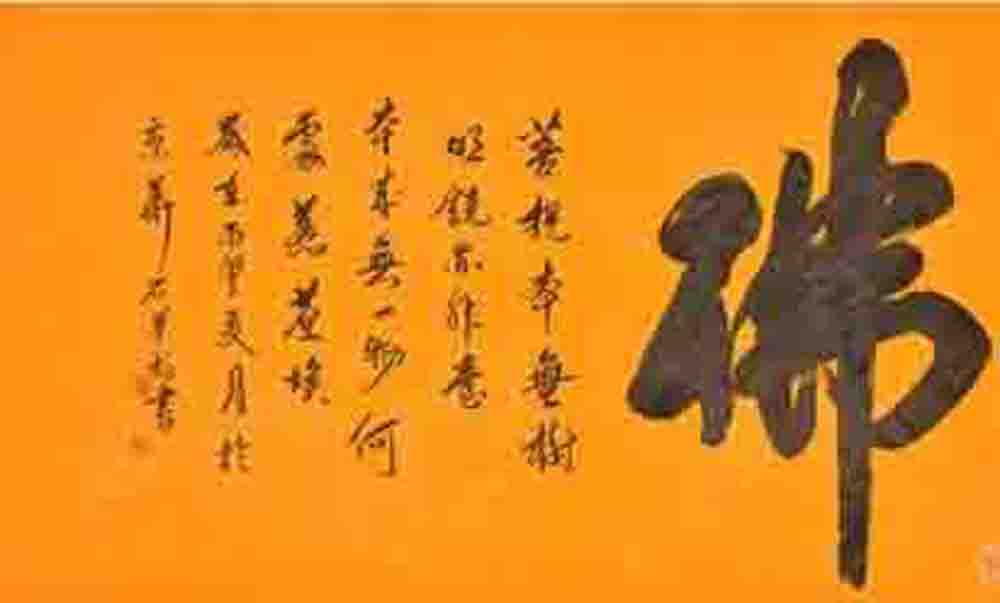 佛
菩提本無樹
明鏡亦非臺
本來無一物何
處惹塵埃
歲在夏月於
京華書